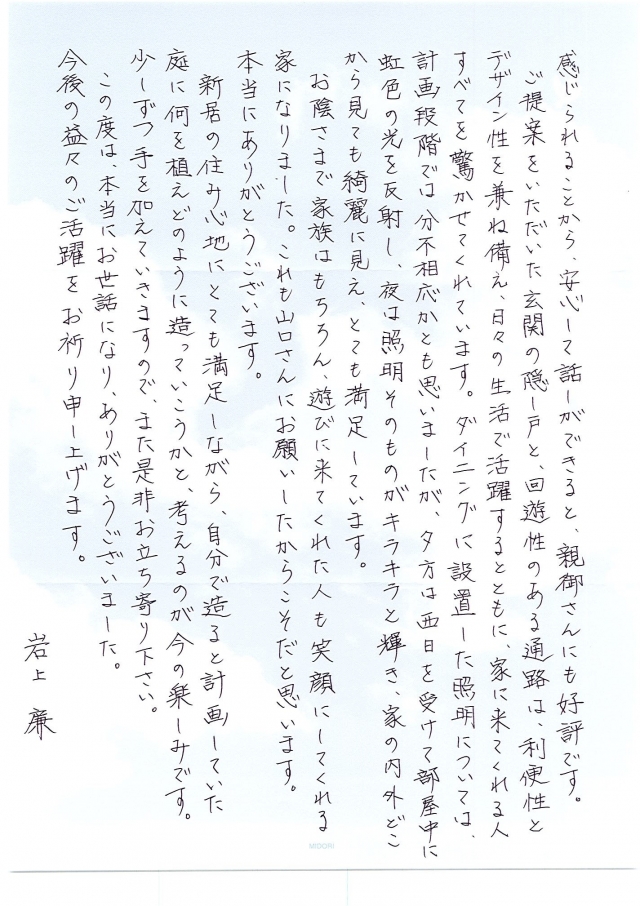 感じられることから、安心して話しができると、親御さんにも好評です。
ご提案をいただいた玄関の隠し戸と、回遊性のある通路は、利便性と
デザイン性を兼ね備え、日々の生活で活躍するとともに、家に来てくれる人
すべてを驚かせてくれています。ダイニングに設置した照明については、
計画段階では分不相応かとも思いましたが、夕方は西日を受けて部屋中に
虹色の光を反射し、夜は照明そのものがキラキラと輝き、家の内外どこ
から見ても綺麗に見え、とても満足しています。
お陰さまで家族はもちろん、遊びに来てくれた人も笑顔にしてくれる
家になりました。これも山口さんにお願いしたからこそだと思います。
本当にありがとうございます。
新居の住み心地にとても満足しながら、自分で造ると計画していた
庭に何を植えどのように造っていこうかと、考えるのが今の楽しみです。
少しずつ手を加えていきますので、また是非お立ち寄り下さい。
この度は、本当にお世話になり、ありがとうございました。
今後の益々のご活躍をお祈り申し上げます。
岩上 廉
MIDORI